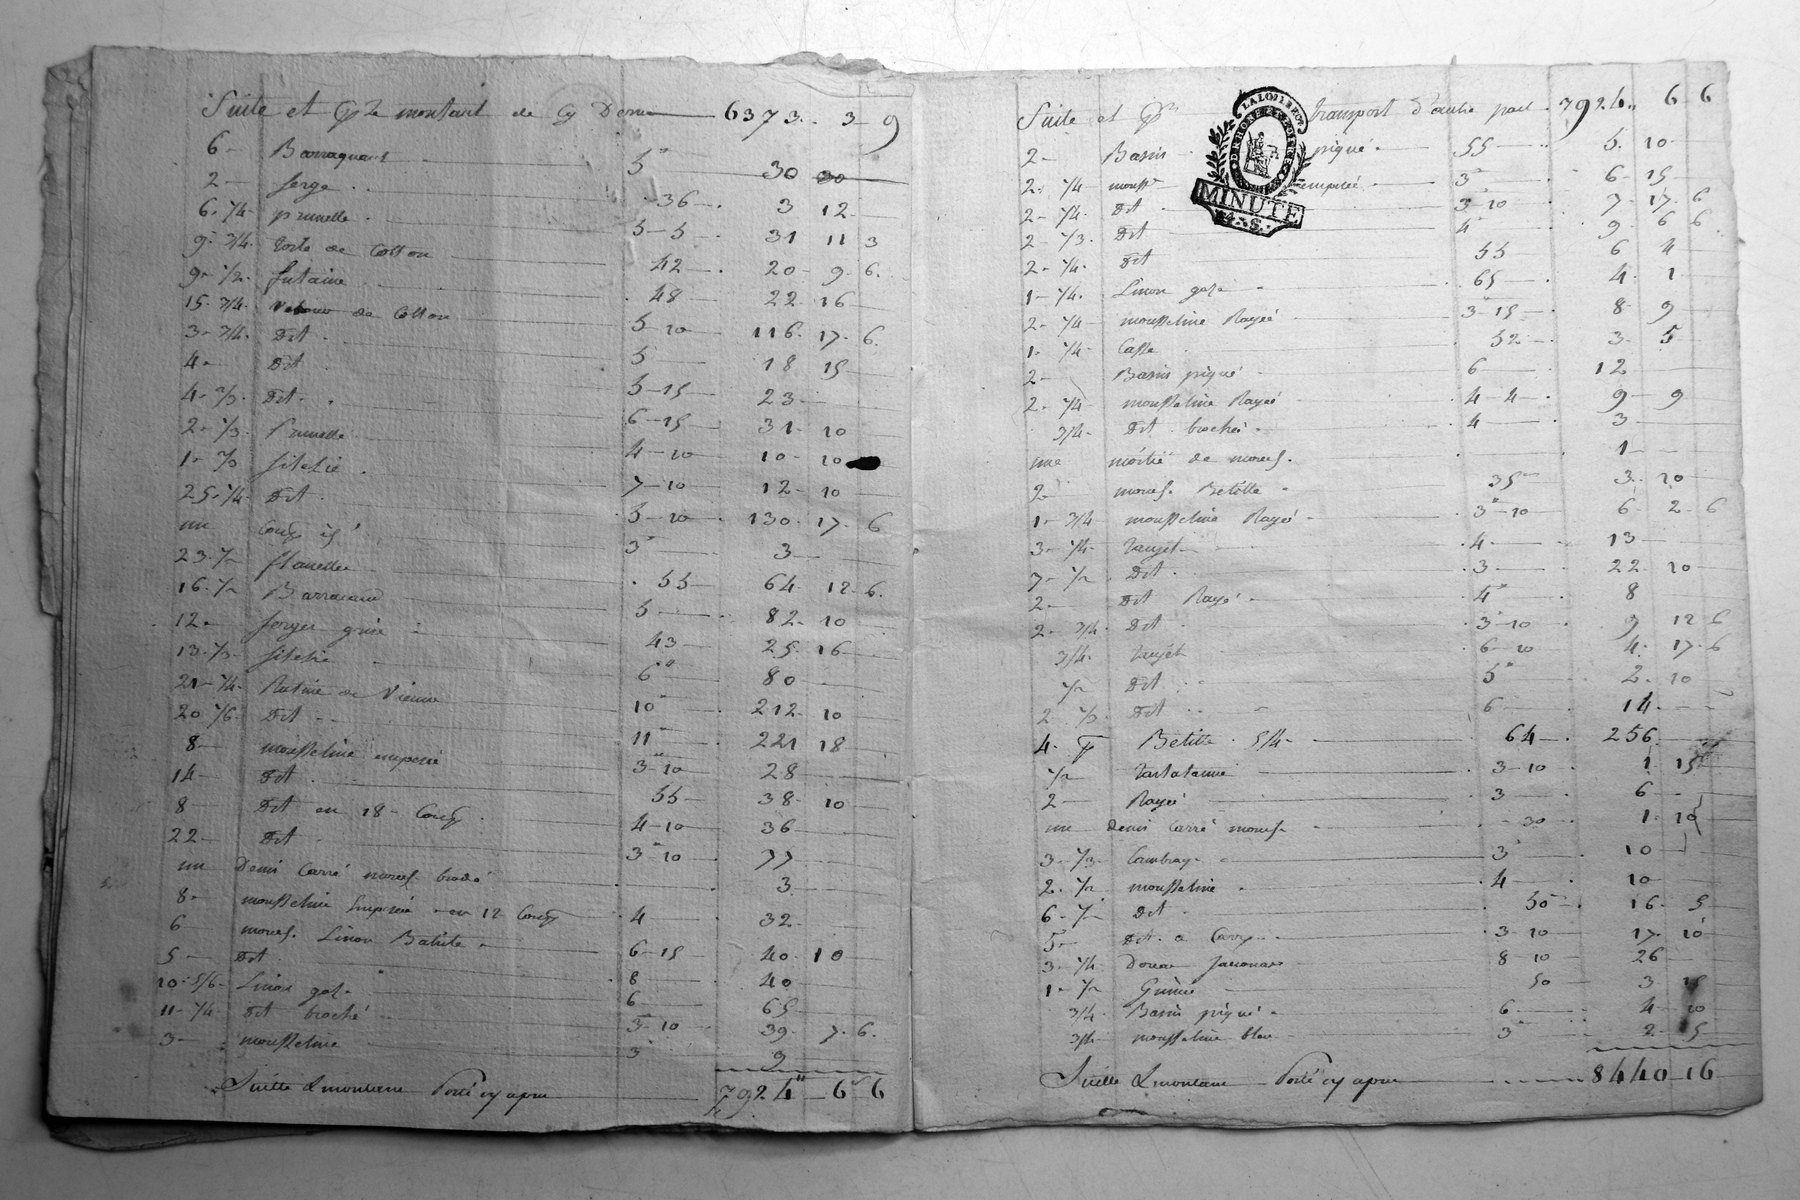 Suite et montant de cy Derrer 6373 - 3 - 9
6 - Barraquant 5 - 30
2 - Serge 36 - 3 12
6 - 1/4 - prunelle 5 - 5 31 11 3
9 - 3/4 - toile de Cotton 42 - 20 - 9 - 6
9 - 1/2 - futaine 48 22 16
15 - 3/4 - velour de Cotton 5 - 10 116 - 17 - 6
3 - 3/4 - Dit 5 18 15
4 - Dit 5 - 15 23
4 - 2/3 - Dit 6 - 15 31 - 10
2 - 1/3 - Prunelle 4 - 10 10 - 10
1 - Silesie 7 - 10 12 - 10
23 - 3/4 Dit 5 - 10 130 - 17 - 6
une 3 3
23 - 1/2 flanelle 55 64 12 - 6
16 - 1/2 Barracand 5 82 - 10
12 - Serger grise 43 25 - 16
13 - 1/3 - Silesie 6 80
21 - 1/4 - Ratine de Vienne 10 212 - 10
20 1/6 - Dit 11 221 18
8 - mousseline 3 - 10 28
14 - Dit 55 38 - 10
8 Dit en 18 - Coup 4 - 10 36
22 - Dit 3 - 10 77
une Demi Carré mousse brodé 3
8 - mousseline en 12 Coup 4 32
6 mouss. Linon Batiste 6 - 15 40 - 10
5 - Dit 8 40
10 - 5/6 - Linon gaze 6 65
11 - 1/4 - Dit broché 3 - 10 39 - 7 - 6
3 - mousseline 3 9
Suitte & montant Porté cy apres 7924 - 6 6
Suite et transport d'autre part 7924 6 6
LA LOI 11 BOR
DU RHONE ET LOIRE
MINUTE
4. S.
2 - Basin piqué 55 5 - 10
2 - 1/4 mouss 3 6 - 15
2 - 1/4 - Dit 3 10 7 - 17 - 6
2 - 1/3 - Dit 4 9 6 6
2 - 1/4 - Dit 55 6 4
1 - 1/4 - Linon gaze 65 4 1
2 - 1/4 mousseline Rayée 3 - 15 8 - 9
1 - 1/4 Casse 52 3 - 5
2 - Basin piqué 6 12
2 - 1/4 mousseline Rayée 4 - 4 9 - 9
3/4 Dit broché 4 3
une moitié de mouss. 1
2 - mouss. Betille 35 3 - 10
1 - 3/4 mousseline Rayé 3 - 10 6 - 2 - 6
3 - 1/4 - tanjet 4 13
7 - 1/2 Dit 3 22 - 10
2 - Dit Rayé 4 8
2 - 3/4 Dit 3 - 10 9 12 6
3/4 - tanjet 6 - 10 4 - 17 - 6
1/2 Dit 5 2 - 10
2 1/3 - Dit 6 14
4 - Betille 5/4 - 64 256
1/2 tartatanne 3 - 10 1 15
2 - Rayée 3 6
une demi Carré mouss 30 1 - 10
3 - 1/3 - Combray 3 10
2 - 1/2 mousseline 4 10
6 - 1/2 - Dit 50 16 - 5
5 - Dit a Carr 3 - 10 17 - 10
3 - 1/4 8 10 26
1 - 1/2 Guinée 50 3 15
3/4 - Basin piqué 6 4 10
3/4 - mousseline bleu 3 2 - 5
Suitte & montant Porté cy apres 8440 - 16